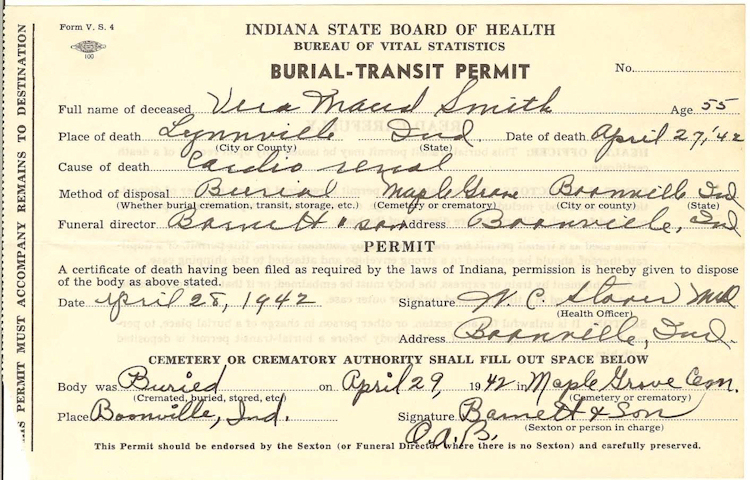 Form V. S. 4
100
INDIANA STATE BOARD OF HEALTH
BUREAU OF VITAL STATISTICS
BURIAL-TRANSIT PERMIT
No.
Full name of deceased Vera Maud Smith Age 55
Place of death Lynnville Ind Date of death April 27, '42
(City or County) (State)
Cause of death Cardio renal
Method of disposal Burial Maple Grove Boonville Ind
(Whether burial cremation, transit, storage, etc.) (Cemetery or crematory) (City or county) (State)
Funeral director Barnett & son Address Boonville, Ind
PERMIT
A certificate of death having been filed as required by the laws of Indiana, permission is hereby given to dispose
of the body as above stated.
Date April 28, 1942 Signature W. C. Stover MD
(Health Officer)
Address Boonville, Ind.
CEMETERY OR CREMATORY AUTHORITY SHALL FILL OUT SPACE BELOW
Body was Buried on April 29, 1942 in Maple Grove Cem.
(Cremated, buried, stored, etc) (Cemetery or crematory)
Place Boonville, Ind. Signature Barnett & Son
(Sexton or person in charge)
O.A.B.
This Permit should be endorsed by the Sexton (or Funeral Director where there is no Sexton) and carefully preserved.
PERMIT MUST ACCOMPANY REMAINS TO DESTINATION